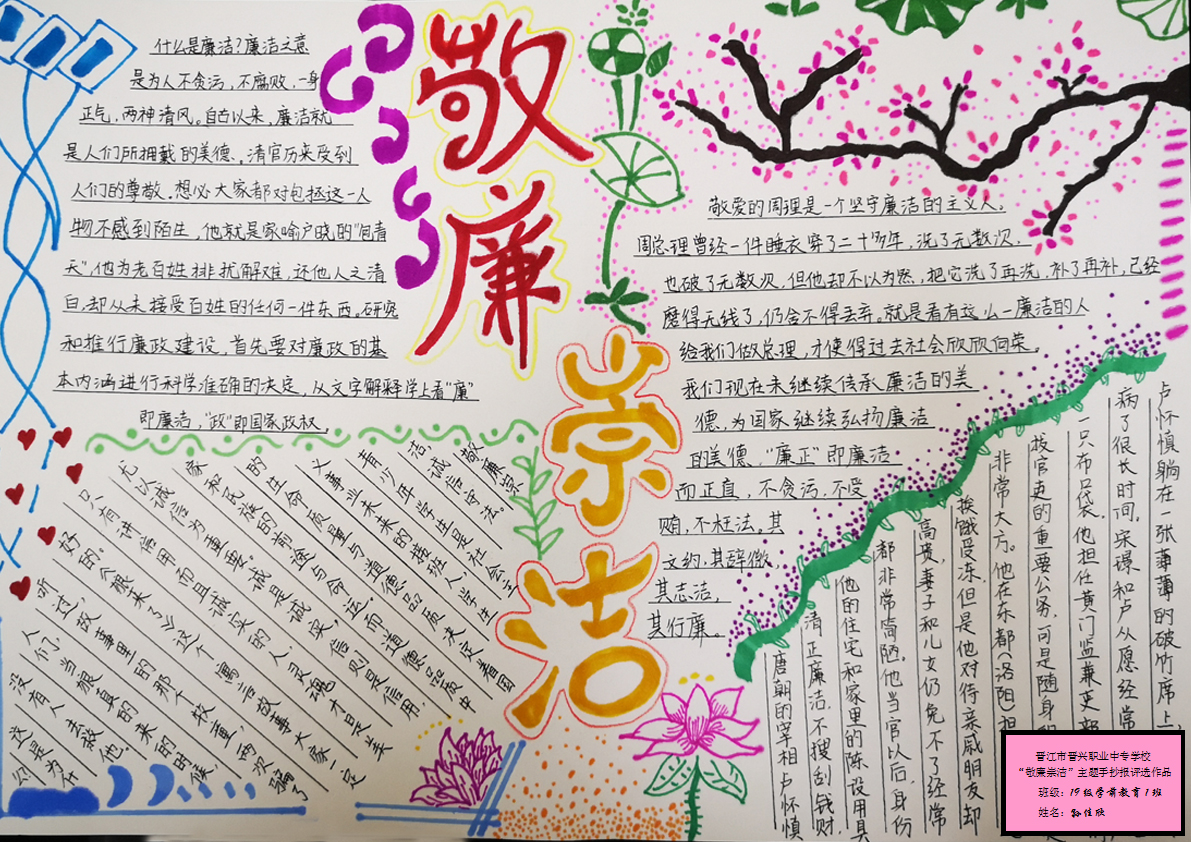 敬廉崇洁
什么是廉洁?廉洁之意
是为人不贪污,不腐败,一身
正气,两袖清风。自古以来,廉洁就
是人们所拥戴的美德,清官历来受到
人们的尊敬。想必大家都对包拯这一人
物不感到陌生,他就是家喻户晓的"包青
天",他为老百姓排扰解难,还他人之清
白,却从未接受百姓的任何一件东西。研究
和推行廉政建设,首先要对廉政的基
本内涵进行科学准确的决定,从文字解释学上看"廉"
即廉洁,"政"即国家政权。
敬爱的周理是一个坚守廉洁的主义人。
周总理曾经一件睡衣穿了二十多年,洗了无数次,
也破了无数次,但他却不以为然,把它洗了再洗,补了再补,已经
磨得无线了,仍舍不得丢弃。就是看有这么一廉洁的人
给我们做总理,才使得过去社会欣欣向荣。
我们现在未继续传承廉洁的美
德,为国家继续弘扬廉洁
的美德,"廉正"即廉洁
而正直,不贪污,不受
贿,不枉法。其
文约,其辞微,
其志洁,
其行廉。
敬廉崇
洁,诚信守法。
青少年学生是社会主
义事业未来的接班人,学生
的生命质量与道德品质决定着国
家和民族的前途与命运,而道德品质中
尤以诚信为重要,诚是诚实,信则是信用,
只有讲信用而且诚实的人,灵魂才是美
好的。《狼来了》这个寓言故事大家一定
听过故事里的那个牧童,两次骗了
人们,当狼真的来的时候,
没有人去救他。
这是为什
唐朝的宰相卢怀慎
清正廉洁,不搜刮钱财,
他的住宅和家里的陈设用具
都非常简陋。他当官以后,身份
高贵,妻子和儿女仍免不了经常
挨饿受冻,但是他对待亲戚朋友却
非常大方。他在东都(洛阳)担
拔官吏的重要公务,可是随身的
一只布口袋。他担任黄门监兼吏部
病了很长时间。宋璟和卢从愿经常
卢怀慎躺在一张薄薄的破竹席上,
晋江市晋兴职业中专学校
"敬廉崇洁"主题手抄报评选作品
班级:19级学前教育1班
姓名:孙佳欣